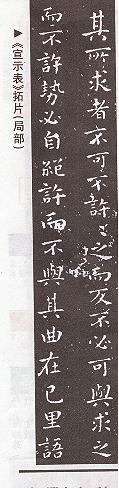 其所求者不可不許〻之而反不必可與求之
而不許勢必自絕許而不與其曲在己里語
▶《宣示表》拓片(局部)